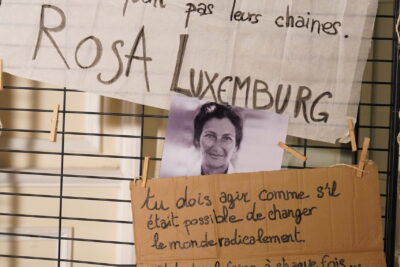 pas leurs chaines.
ROSA LUXEMBURG
tu dois agir comme s'il
était possible de changer
le monde radicalement.
à chaque fois...